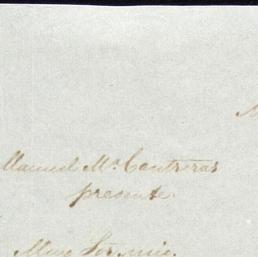 Manuel Ma. Contreras
presente.
Muy Sor. mio.